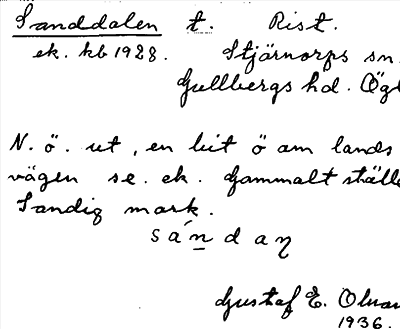 Sanddalen t. Rist.
ek. kb 1928. Stjärnorps sn.
Gullbergs hd. Ögl
N. ö. ut, en bit ö om lands
vägen se. ek. Gammalt ställe
Sandig mark.
sá́n̲daŋ
Gustaf E. 
1936.